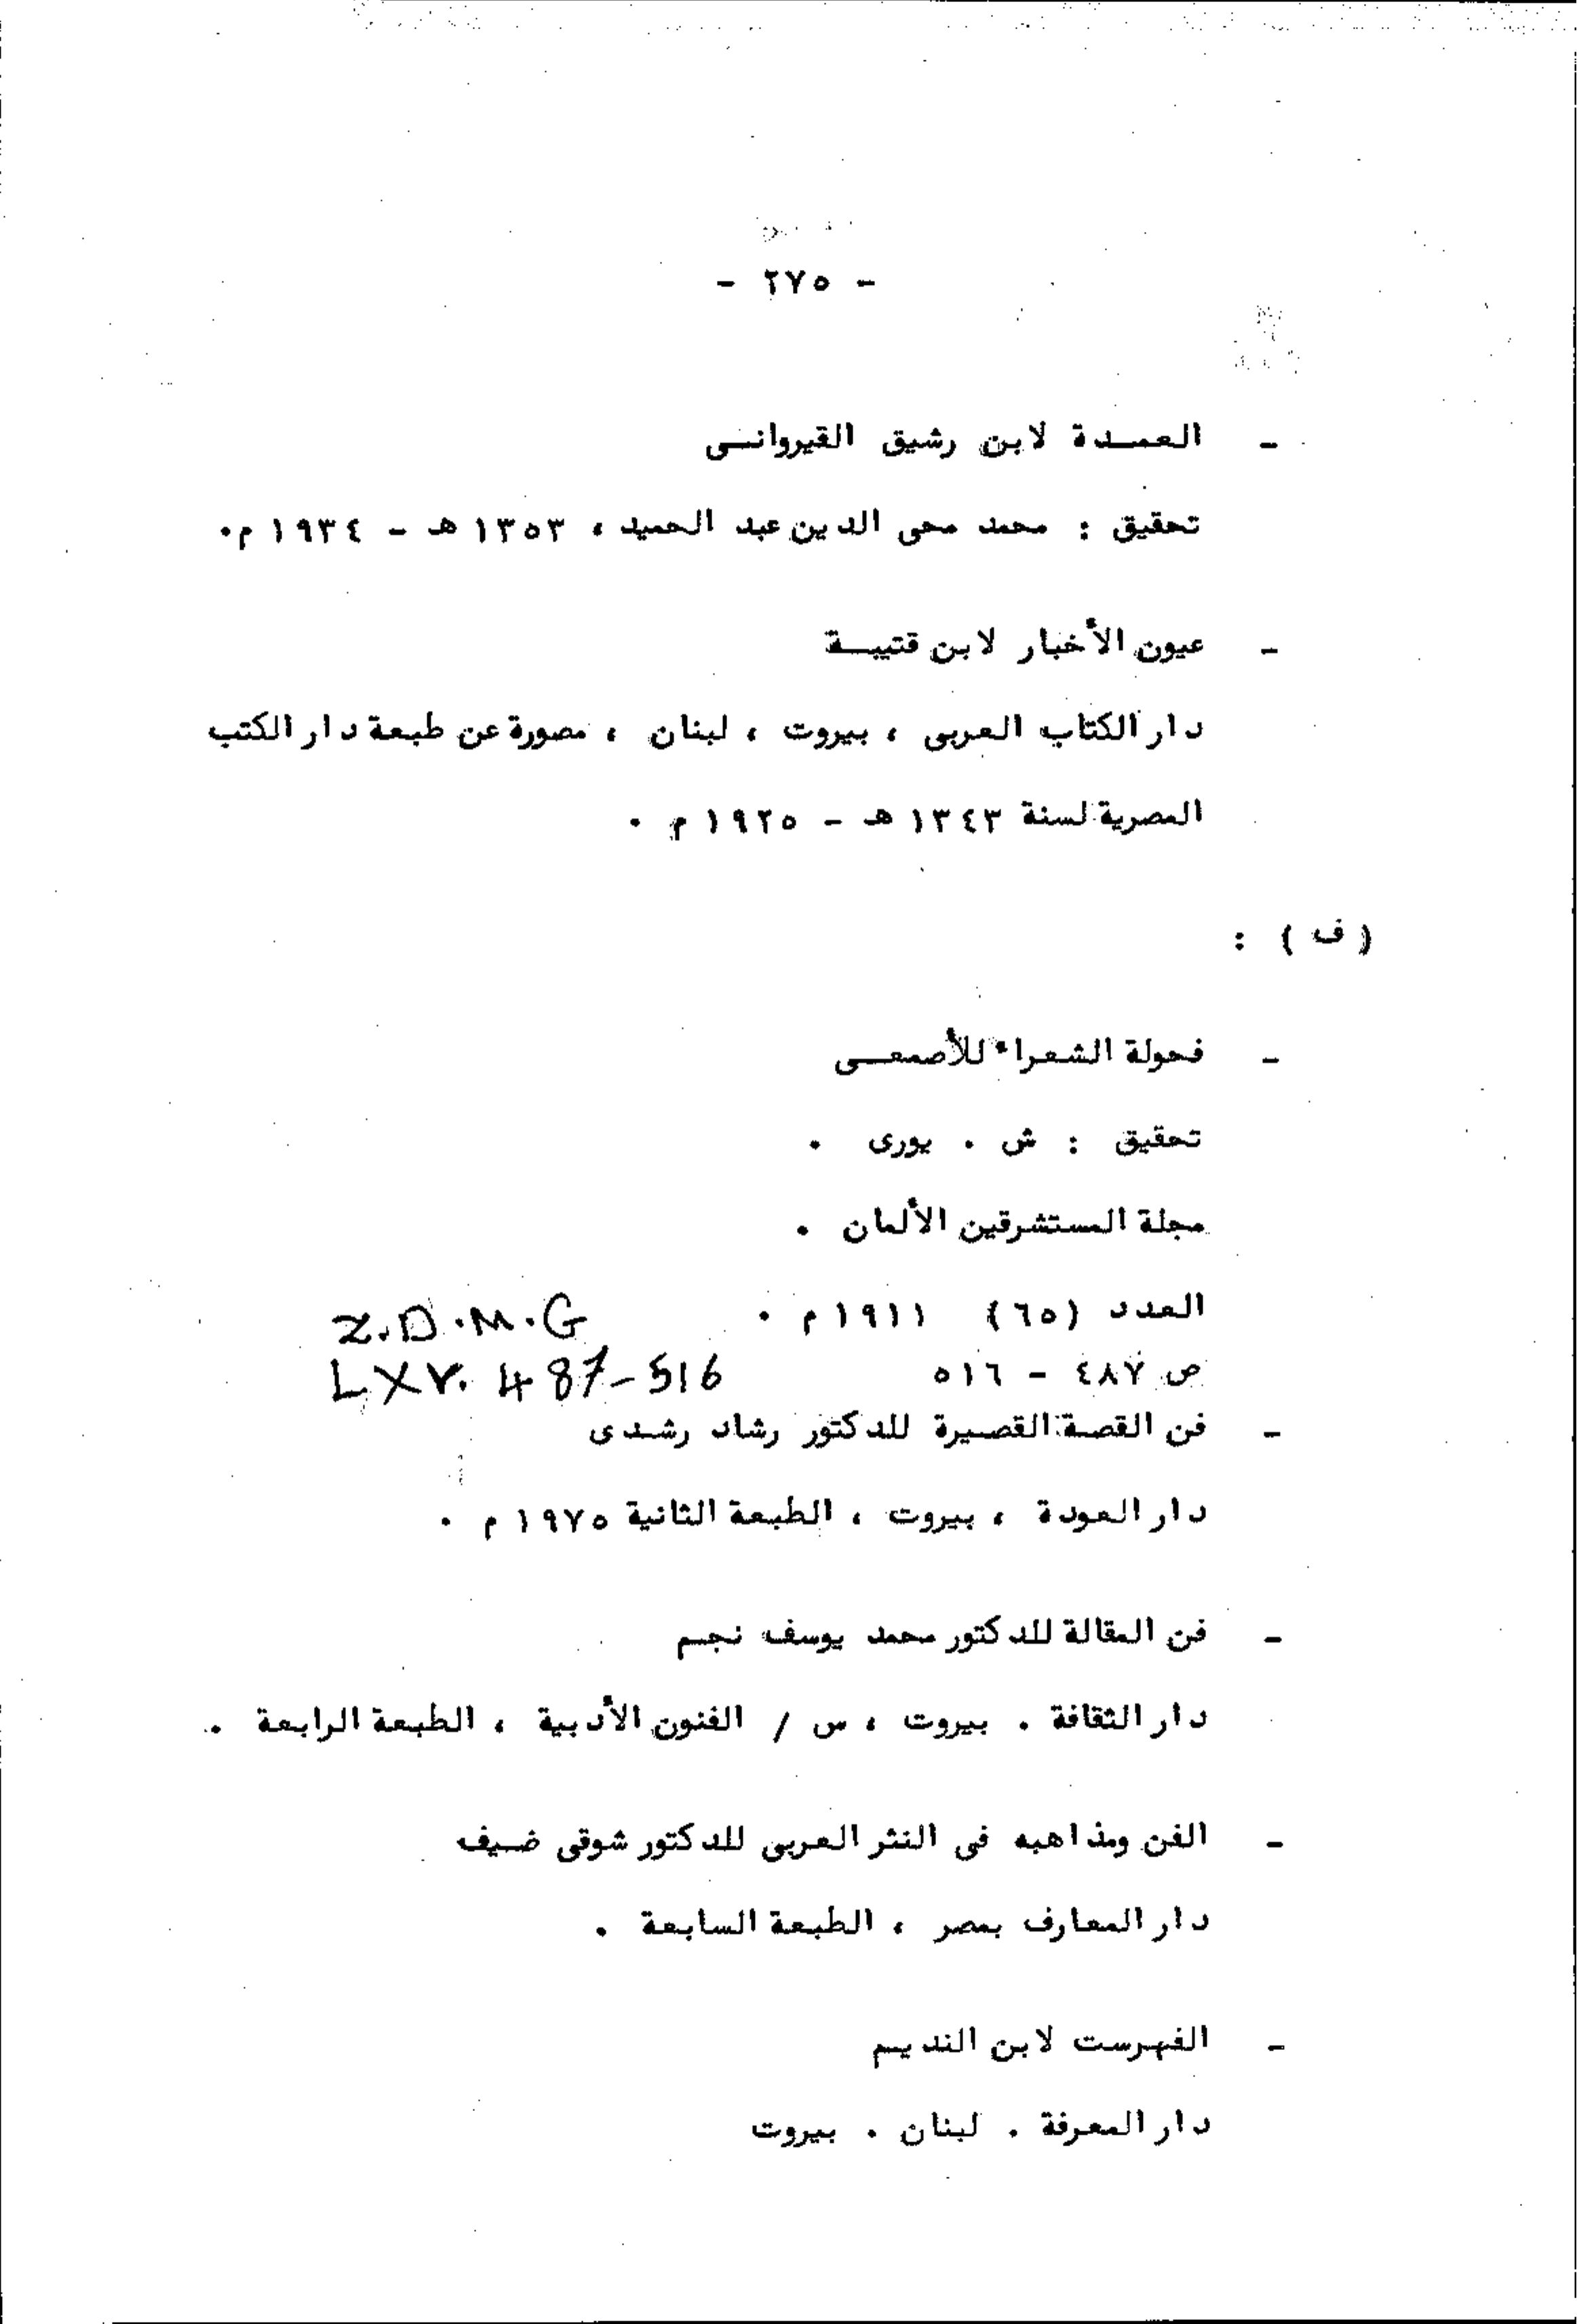 - ٢٧٥ -
- العمدة لابن رشيق القيروانى
تحقيق : محمد محى الدين عبد الحميد ، ١٣٥٣ هـ - ١٩٣٤ م.
- عيون الأخبار لابن قتيبة
دار الكتاب العربى ، بيروت ، لبنان ، مصورة عن طبعة دار الكتب
المصرية لسنة ١٣٤٣ هـ - ١٩٢٥ م .
( ف ) :
- فحولة الشعراء للأصمعى
تحقيق : ش . يورى .
مجلة المستشرقين الألمان .
العدد (٦٥) ١٩١١ م . Z.D.M.G
ص ٤٨٧ - ٥١٦ LXV. 487-516
- فن القصة القصيرة للدكتور رشاد رشدى
دار العودة ، بيروت ، الطبعة الثانية ١٩٧٥ م .
- فن المقالة للدكتور محمد يوسف نجم
دار الثقافة . بيروت ، س / الفنون الأدبية ، الطبعة الرابعة .
- الفن ومذاهبه فى النثر العربى للدكتور شوقى ضيف
دار المعارف بمصر ، الطبعة السابعة .
- الفهرست لابن النديم
دار المعرفة . لبنان . بيروت